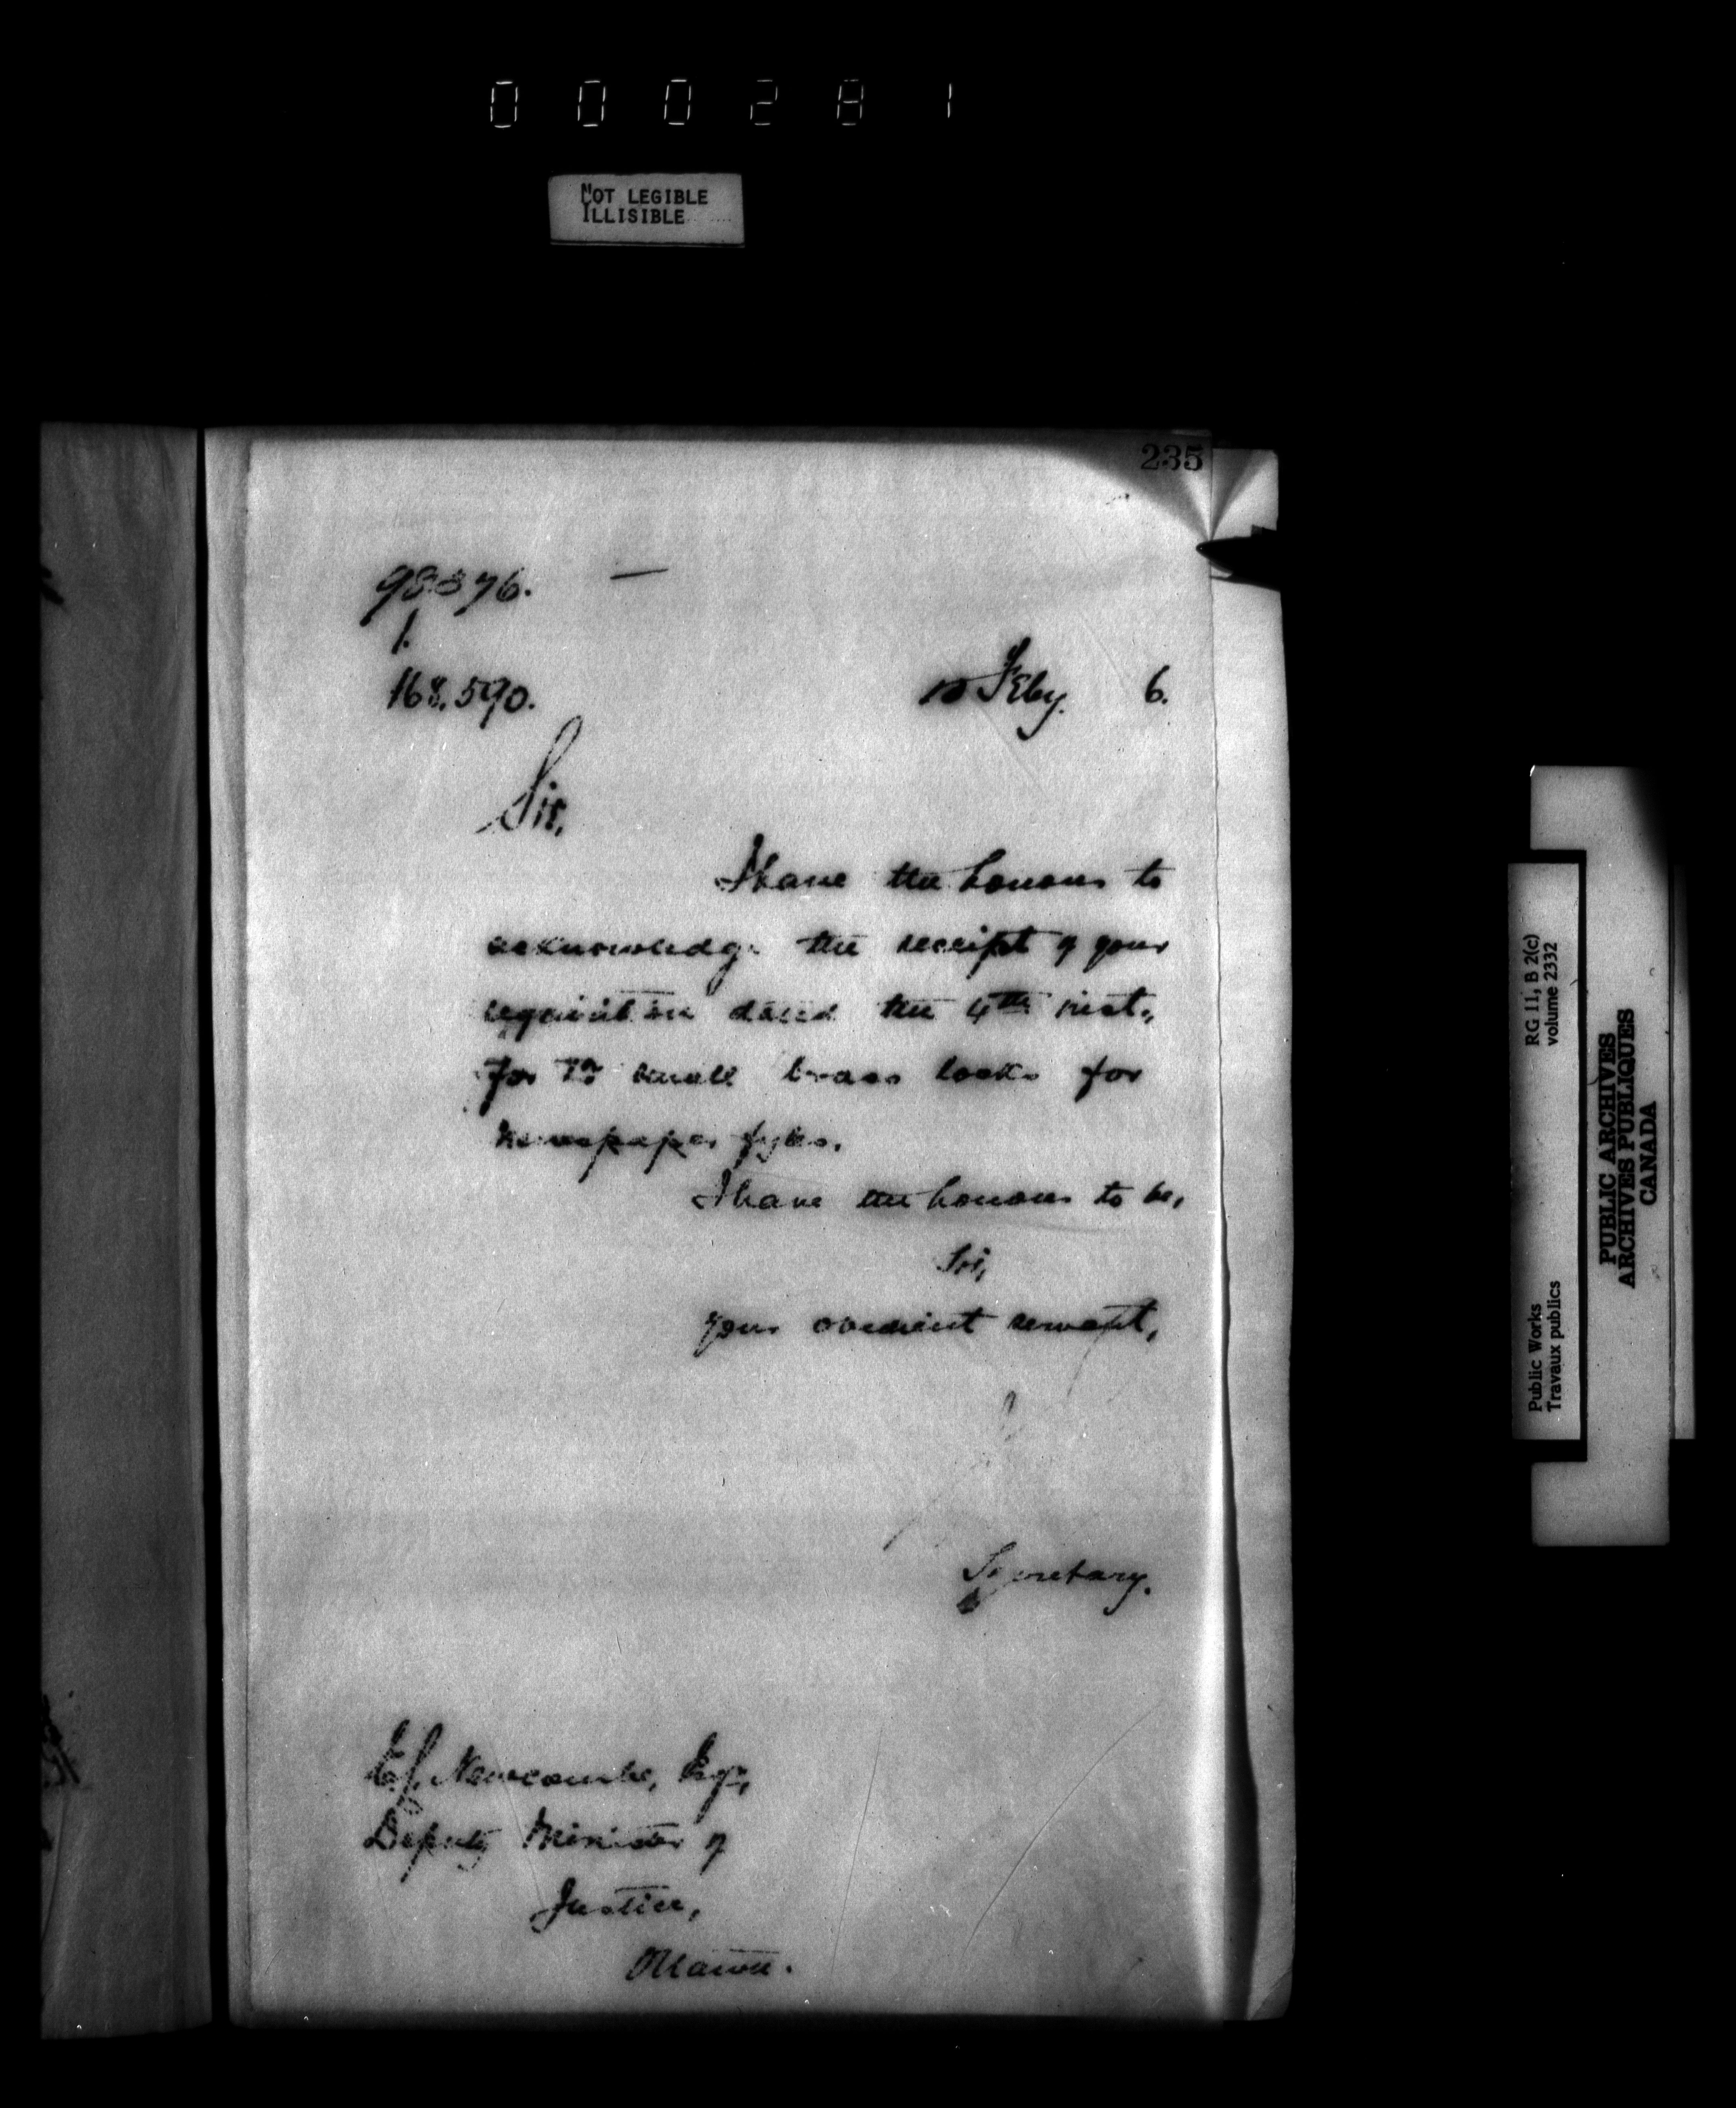 000281
NOT LEGIBLE
ILLISIBLE
235
98376.
1.
168.590.
10 Feby. 6.
Sir,
I have the honour to
acknowledge the receipt of your
requisition dated the 4th inst.,
for small brass locks for
newspaper fyles.
I have the honour to be,
Sir,
your obedient servant,
Secretary.
E.L. Newcombe, Esq.,
Deputy Minister of
Justice,
Ottawa.
RG 11, B 2(c)
volume 2332
Public Works
Travaux publics
PUBLIC ARCHIVES
ARCHIVES PUBLIQUES
CANADA